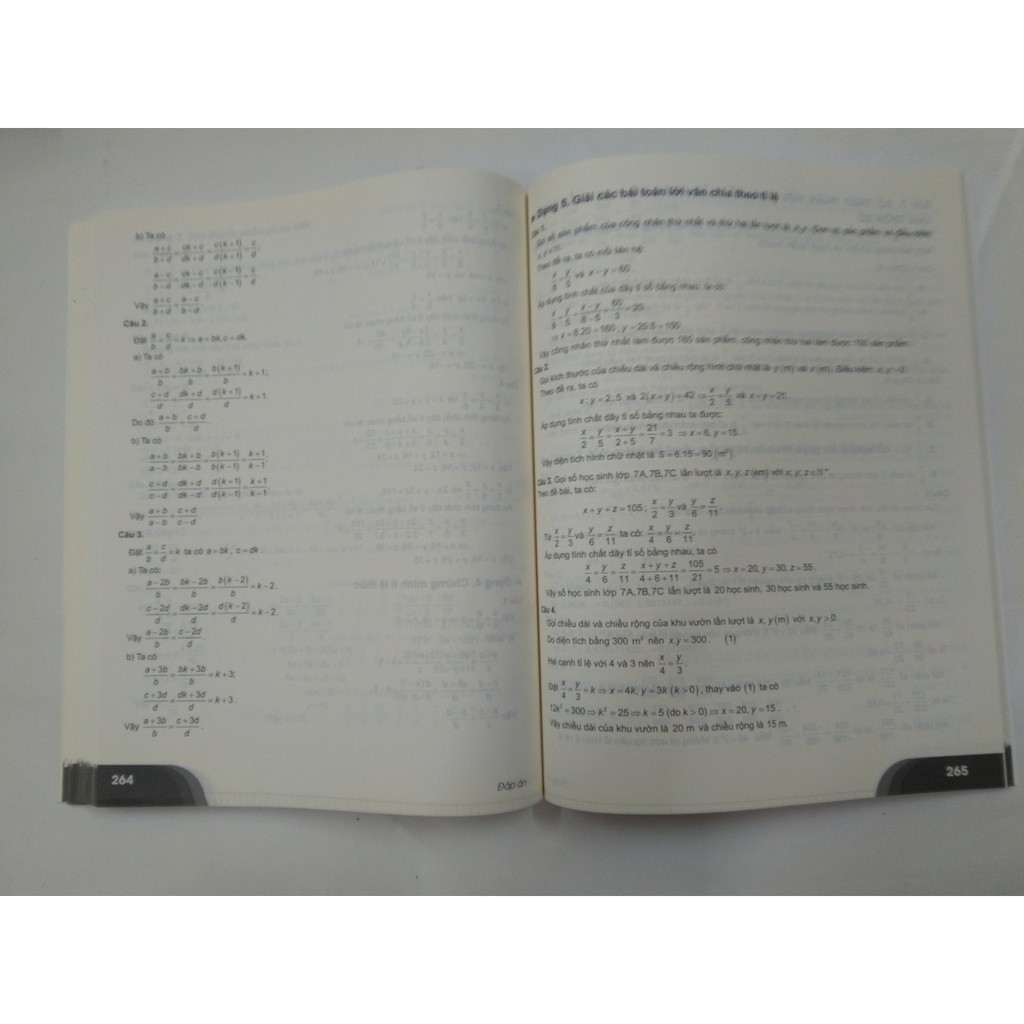 b) Ta có
(a+c)/(b+d) = (ck+c)/(dk+d) = c(k+1)/d(k+1) = c/d;
(a−c)/(b−d) = (ck−c)/(dk−d) = c(k−1)/d(k−1) = c/d
Vậy (a+c)/(b+d) = (a−c)/(b−d)
Câu 2.
Đặt a/b = c/d = k ⇒ a = bk, c = dk.
a) Ta có
(a+b)/b = (bk+b)/b = b(k+1)/b = k+1;
(c+d)/d = (dk+d)/d = d(k+1)/d = k+1.
Do đó (a+b)/b = (c+d)/d
b) Ta có
(a+b)/(a−b) = (bk+b)/(bk−b) = b(k+1)/b(k−1) = (k+1)/(k−1);
(c+d)/(c−d) = (dk+d)/(dk−d) = d(k+1)/d(k−1) = (k+1)/(k−1)
Vậy (a+b)/(a−b) = (c+d)/(c−d).
Câu 3.
Đặt a/b = c/d = k ta có a = bk, c = dk.
a) Ta có:
(a−2b)/b = (bk−2b)/b = b(k−2)/b = k−2.
(c−2d)/d = (dk−2d)/d = d(k−2)/d = k−2.
Vậy (a−2b)/b = (c−2d)/d.
b) Ta có
(a+3b)/b = (bk+3b)/b = k+3;
(c+3d)/d = (dk+3d)/d = k+3.
Vậy (a+3b)/b = (c+3d)/d.
264
Đáp án
Dạng 5. Giải các bài toán lời văn chia theo tỉ lệ
Câu 1.
Theo đề ra, ta có
x/8 = y/5 và x − y = 60.
Áp dụng tính chất của dãy tỉ số bằng nhau, ta có:
x/8 = y/5 = (x−y)/(8−5) = 60/3 = 20
⇒ x = 8.20 = 160, y = 20.5 = 100
Vậy công nhân thứ nhất làm được 160 sản phẩm, công nhân thứ hai làm được 100 sản phẩm.
Câu 2.
Gọi kích thước của chiều dài và chiều rộng hình chữ nhật là y(m) và x(m). Điều kiện: x; y>0.
Theo đề ra, ta có
x:y = 2:5 và 2(x+y) = 42 ⇒ x/2 = y/5 và x+y = 21.
Áp dụng tính chất dãy tỉ số bằng nhau ta được:
x/2 = y/5 = (x+y)/(2+5) = 21/7 = 3 ⇒ x = 6, y = 15.
Vậy diện tích hình chữ nhật là S = 6.15 = 90 (m²).
Câu 3. Gọi số học sinh lớp 7A,7B,7C lần lượt là x, y, z (em) với x; y; z∈ℕ*.
Theo đề bài, ta có:
x+y+z = 105; x/2 = y/3 và y/6 = z/11.
Từ x/2 = y/3 và y/6 = z/11 ta có: x/4 = y/6 = z/11.
Áp dụng tính chất dãy tỉ số bằng nhau, ta có
x/4 = y/6 = z/11 = (x+y+z)/(4+6+11) = 105/21 = 5 ⇒ x = 20, y = 30, z = 55.
Vậy số học sinh lớp 7A,7B,7C lần lượt là 20 học sinh, 30 học sinh và 55 học sinh.
Câu 4.
Gọi chiều dài và chiều rộng của khu vườn lần lượt là x, y(m) với x, y>0.
Do diện tích bằng 300 m² nên x.y = 300. (1)
Hai cạnh tỉ lệ với 4 và 3 nên x/4 = y/3.
Đặt x/4 = y/3 = k ⇒ x = 4k, y = 3k (k>0), thay vào (1) ta có
12k² = 300 ⇒ k² = 25 ⇒ k = 5 (do k>0) ⇒ x = 20, y = 15.
Vậy chiều dài của khu vườn là 20 m và chiều rộng là 15 m.
265